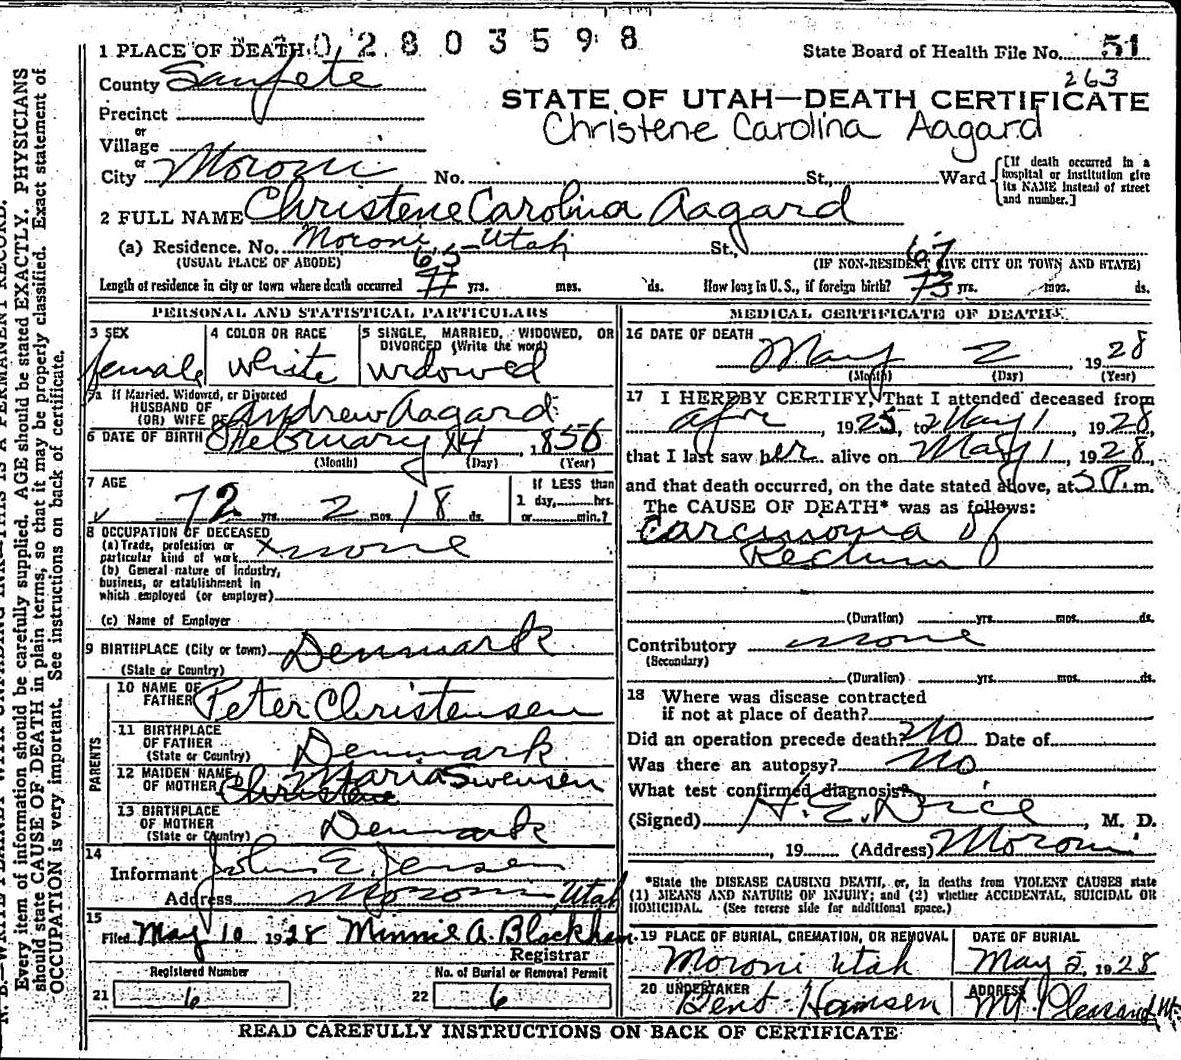 1 PLACE OF DEATH 0 2 8 0 3 5 9 8
State Board of Health File No. 51
263
County Sanpete
STATE OF UTAH—DEATH CERTIFICATE
Precinct
Christene Carolina Aagard
or
Village
or
City Moroni No. St., Ward
[If death occurred in a
hospital or institution give
its NAME instead of street
and number.]
2 FULL NAME Christene Carolina Aagard
(a) Residence. No. Moroni, Utah St.,
(USUAL PLACE OF ABODE) (IF NON-RESIDENT GIVE CITY OR TOWN AND STATE)
65 67
Length of residence in city or town where death occurred 71 yrs. mos. ds. How long in U. S., if foreign birth? 73 yrs. mos. ds.
PERSONAL AND STATISTICAL PARTICULARS
3 SEX 4 COLOR OR RACE 5 SINGLE, MARRIED, WIDOWED, OR
DIVORCED (Write the word)
female white widowed
5a If Married, Widowed, or Divorced
HUSBAND OF
(OR) WIFE OF Andrew Aagard
6 DATE OF BIRTH February 14, 1856
(Month) (Day) (Year)
7 AGE If LESS than
72 yrs. 2 mos. 18 ds. 1 day, hrs.
or min.?
8 OCCUPATION OF DECEASED
(a) Trade, profession or
particular kind of work x none
(b) General nature of industry,
business, or establishment in
which employed (or employer)
(c) Name of Employer
9 BIRTHPLACE (City or town) Denmark
(State or Country)
PARENTS
10 NAME OF
FATHER Peter Christensen
11 BIRTHPLACE
OF FATHER Denmark
(State or Country)
12 MAIDEN NAME Maria Swensen
OF MOTHER Christene
13 BIRTHPLACE
OF MOTHER Denmark
(State or Country)
14
Informant John E. Jensen
Address Moroni Utah
15
Filed May 10 1928 Minnie A. Blackham
Registrar
Registered Number No. of Burial or Removal Permit
21 6 22 6
MEDICAL CERTIFICATE OF DEATH
16 DATE OF DEATH
May 2, 1928
(Month) (Day) (Year)
17 I HEREBY CERTIFY, That I attended deceased from
apr, 1925, to May 1, 1928,
that I last saw her alive on May 1, 1928,
and that death occurred, on the date stated above, at 5 P. m.
The CAUSE OF DEATH* was as follows:
Carcinoma of
Rectum
(Duration) yrs. mos. ds.
Contributory none
(Secondary)
(Duration) yrs. mos. ds.
18 Where was disease contracted
if not at place of death?
Did an operation precede death? No Date of
Was there an autopsy? No
What test confirmed diagnosis?
(Signed) , M. D.
, 19 (Address) Moroni
*State the DISEASE CAUSING DEATH, or, in deaths from VIOLENT CAUSES state
(1) MEANS AND NATURE OF INJURY; and (2) whether ACCIDENTAL, SUICIDAL OR
HOMICIDAL. (See reverse side for additional space.)
19 PLACE OF BURIAL, CREMATION, OR REMOVAL DATE OF BURIAL
Moroni Utah May 5, 1928
20 UNDERTAKER ADDRESS
Bent Hansen Mt Pleasant, Ut.
READ CAREFULLY INSTRUCTIONS ON BACK OF CERTIFICATE
THIS IS A PERMANENT RECORD.
Every item of information should be carefully supplied. AGE should be stated EXACTLY. PHYSICIANS
should state CAUSE OF DEATH in plain terms, so that it may be properly classified. Exact statement of
OCCUPATION is very important. See instructions on back of certificate.